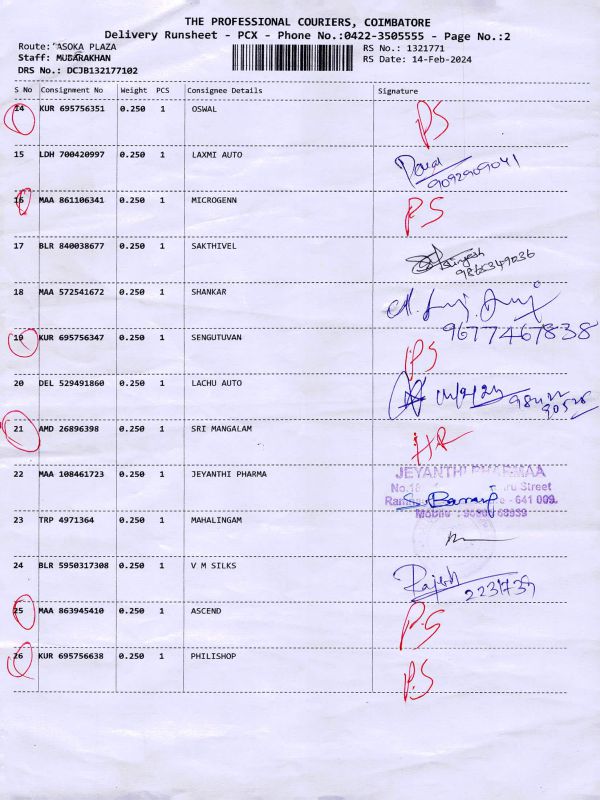 THE PROFESSIONAL COURIERS, COIMBATORE
Delivery Runsheet - PCX - Phone No.:0422-3505555 - Page No.:2
Route: ASOKA PLAZA RS No.: 1321771
Staff: MUBARAKHAN RS Date: 14-Feb-2024
DRS No.: DCJB132177102
S No Consignment No Weight PCS Consignee Details Signature
14 KUR 695756351 0.250 1 OSWAL PS
15 LDH 700420997 0.250 1 LAXMI AUTO
9092909041
16 MAA 861106341 0.250 1 MICROGENN PS
17 BLR 840038677 0.250 1 SAKTHIVEL
18 MAA 572541672 0.250 1 SHANKAR
9677467838
19 KUR 695756347 0.250 1 SENGUTUVAN PS
20 DEL 529491860 0.250 1 LACHU AUTO
90526
21 AMD 26896398 0.250 1 SRI MANGALAM HR
22 MAA 108461723 0.250 1 JEYANTHI PHARMA JEYANTHI PHARMAA
Street
- 641 009.
Mobile :
23 TRP 4971364 0.250 1 MAHALINGAM
24 BLR 5950317308 0.250 1 V M SILKS Rajesh
25 MAA 863945410 0.250 1 ASCEND P.S
26 KUR 695756638 0.250 1 PHILISHOP P.S